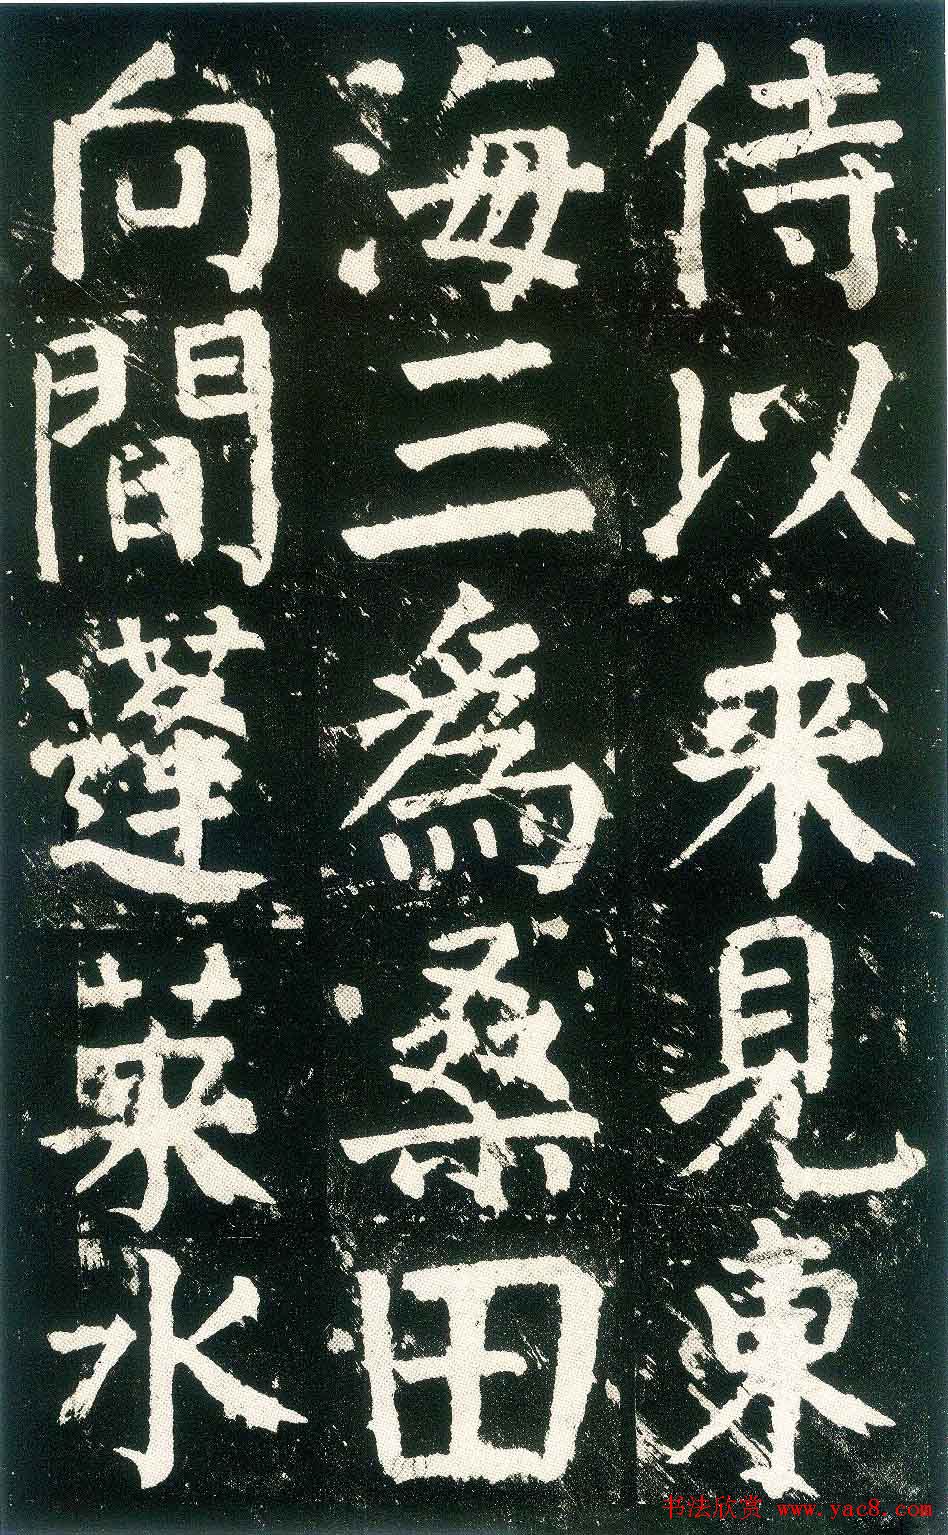 侍以来見東
海三為桑田
向間蓬莱水
书法欣赏 www.yac8.com